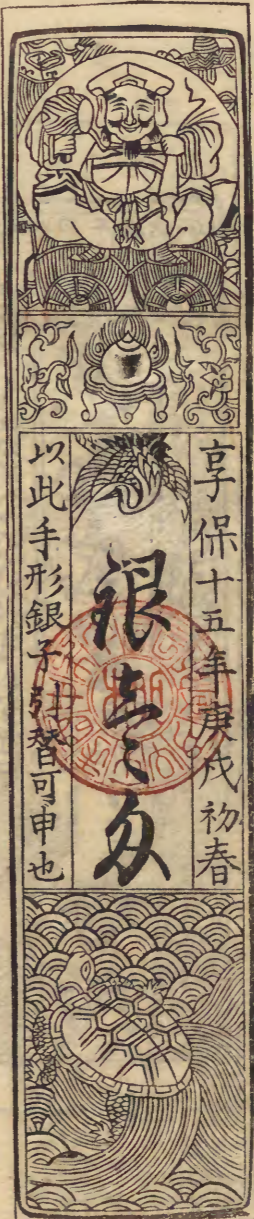 享保十五年庚戌初春
銀壹匁
以此手形銀子引替可申也